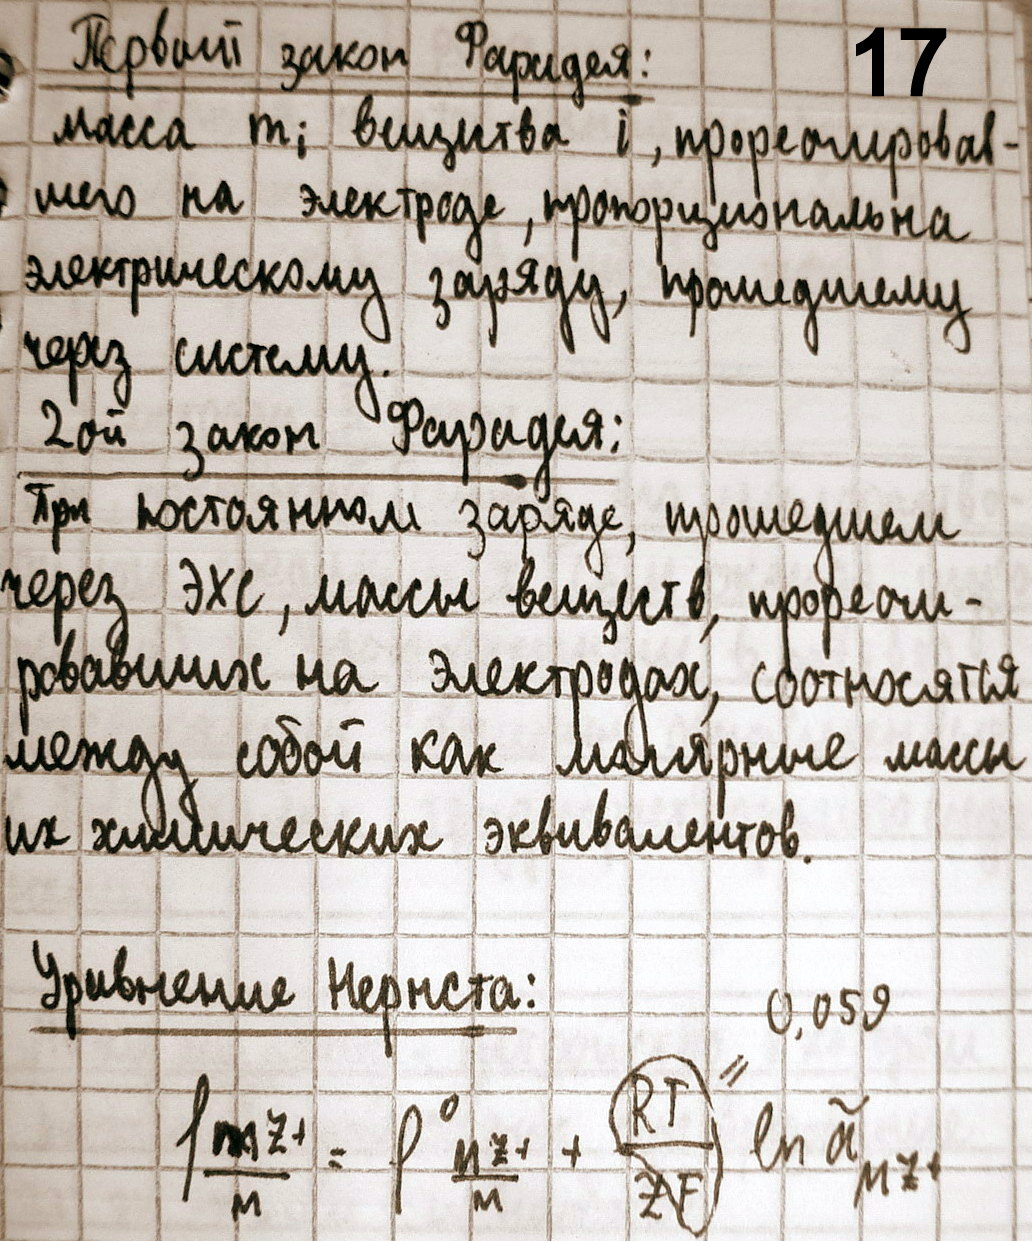 17
Первый закон Фарадея:
масса mᵢ вещества i, прореагировав-
шего на электроде, пропорциональна
электрическому заряду, прошедшему
через систему.
2ой закон Фарадея:
При постоянном заряде, прошедшем
через ЭХС, массы веществ, прореаги-
ровавших на электродах, соотносятся
между собой как молярные массы
их химических эквивалентов.
Уравнение Нернста:
0,059
φ mZ+/м = φ⁰ мZ+/м + RT/ZF ln ã мZ+